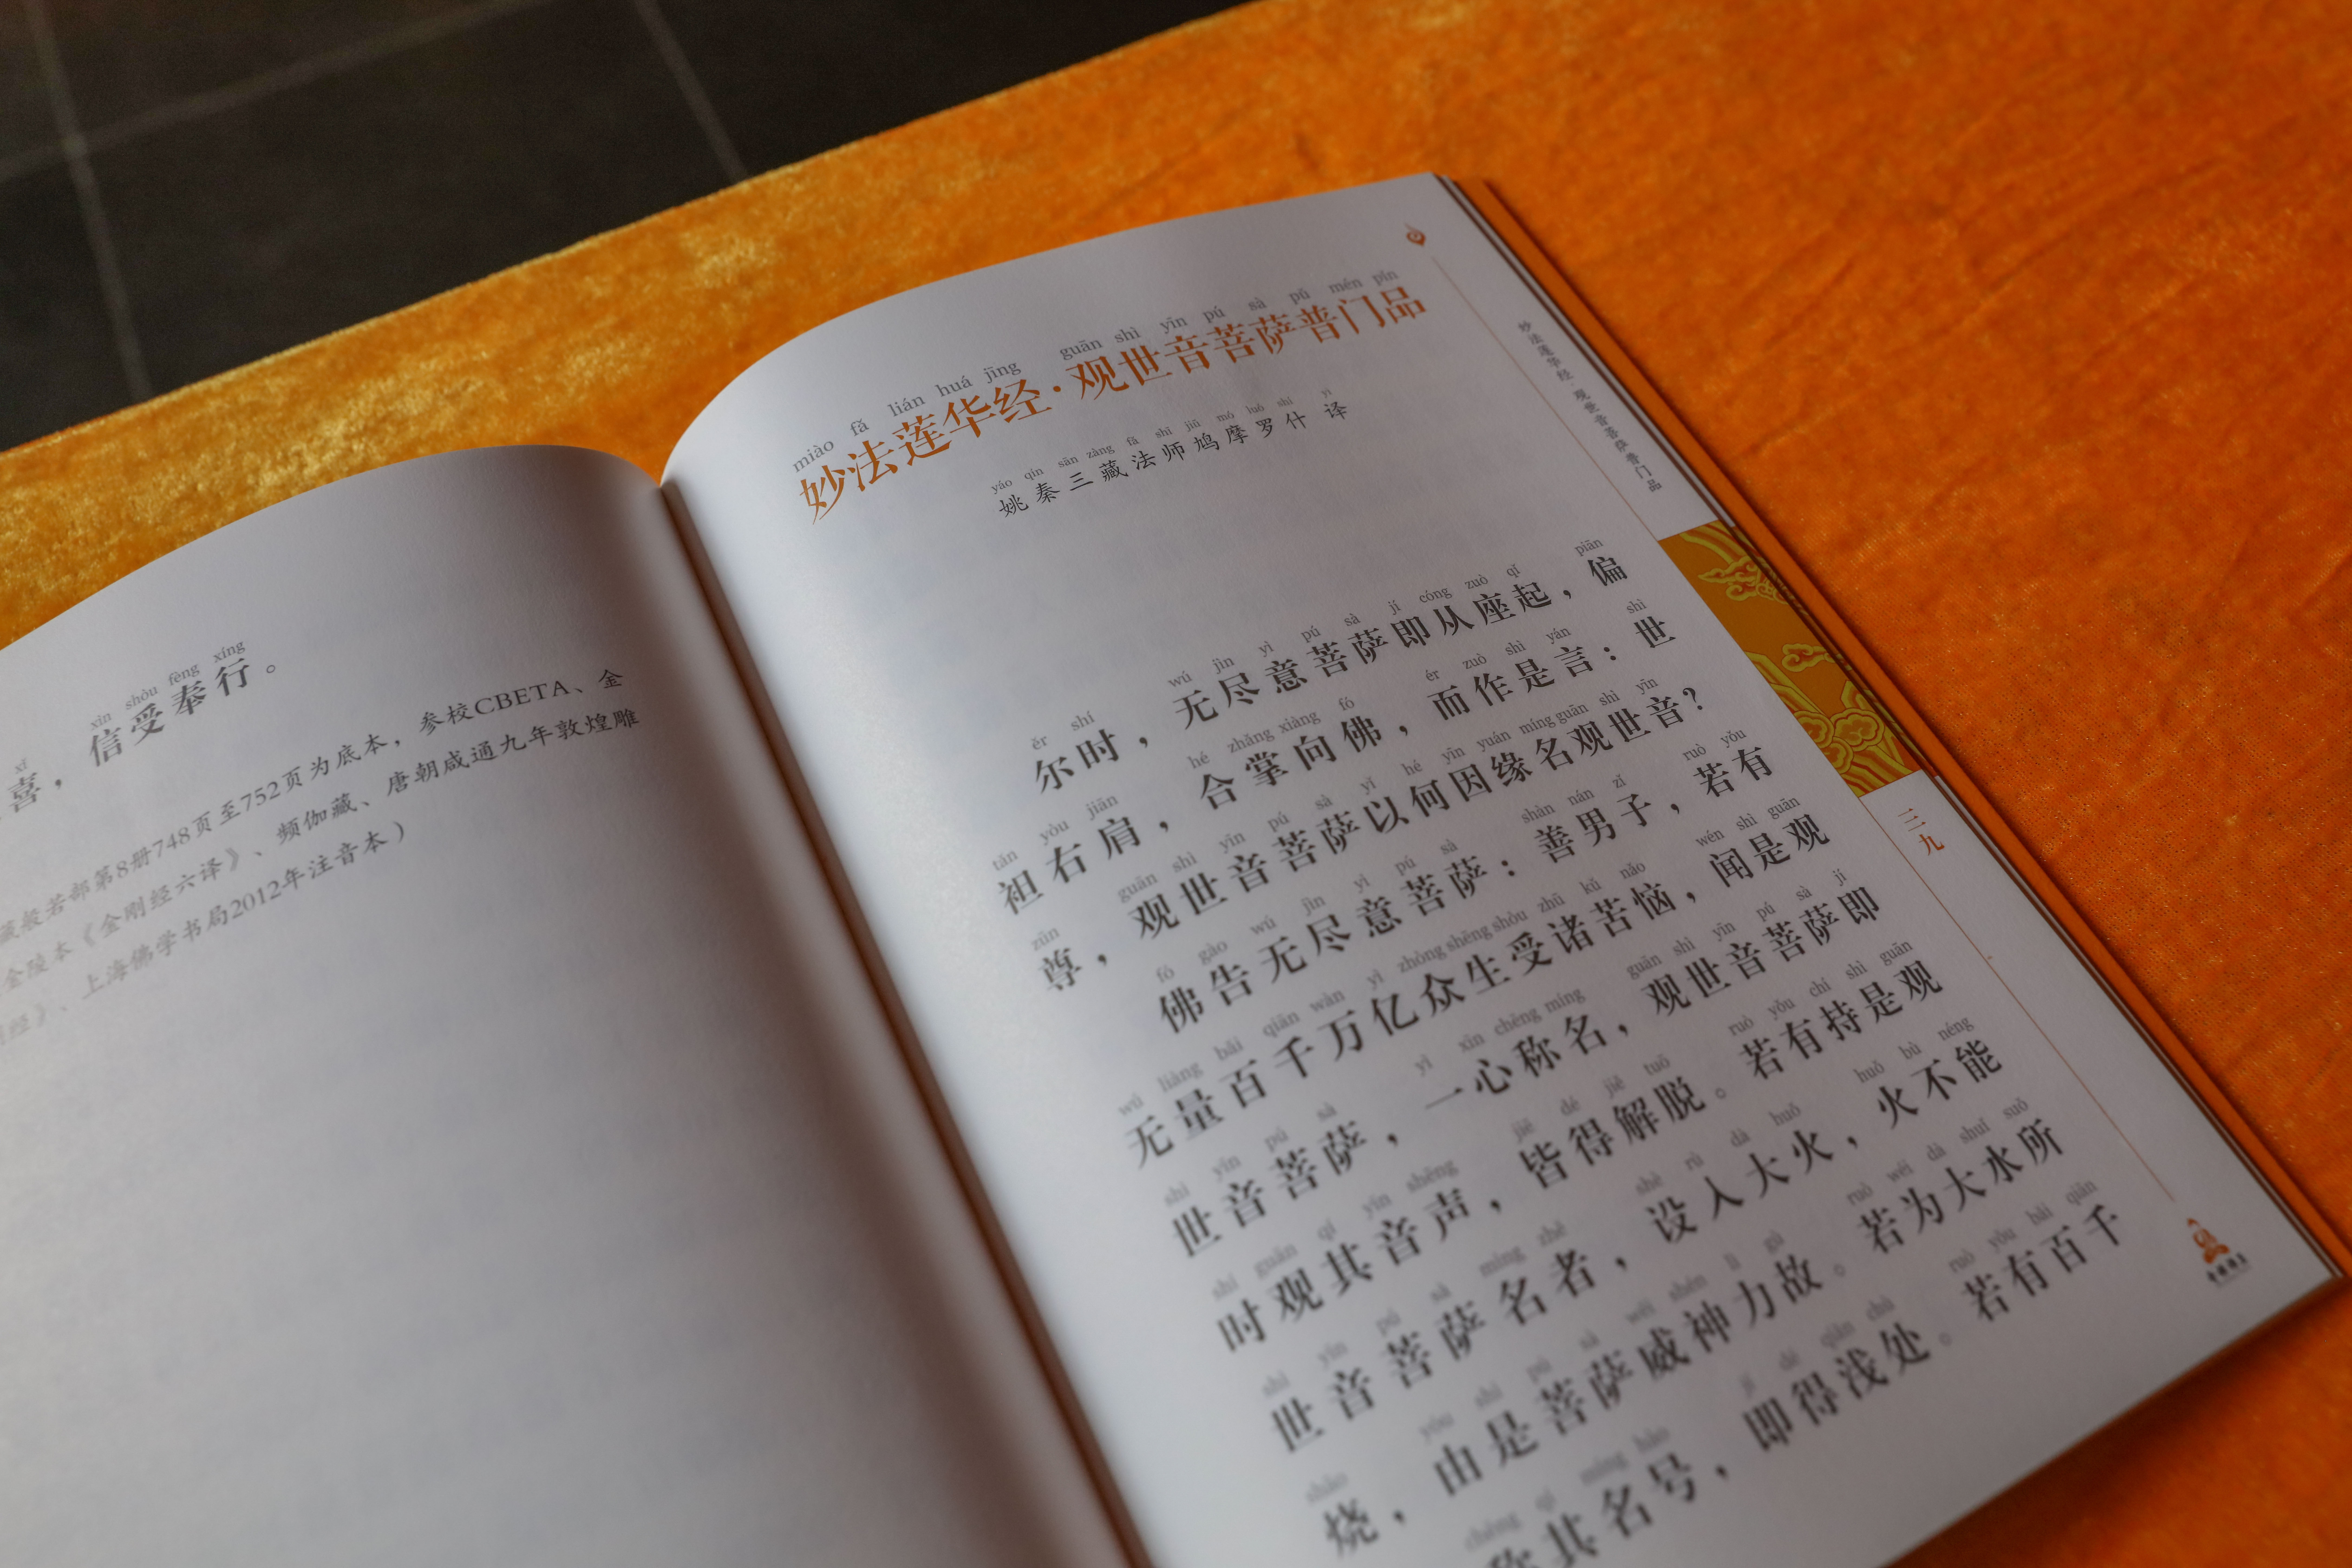 喜，信受奉行。
藏般若部第8册748页至752页为底本，参校CBETA、金
金陵本《金刚经六译》、频伽藏、唐朝咸通九年敦煌雕
经》、上海佛学书局2012年注音本）
miào fǎ lián huá jīng guān shì yīn pú sà pǔ mén pǐn
妙法莲华经·观世音菩萨普门品
yáo qín sān zàng fǎ shī jiū mó luó shí yì
姚秦三藏法师鸠摩罗什 译
ěr shí wú jìn yì pú sà jí cóng zuò qǐ piān
尔时，无尽意菩萨即从座起，偏
tǎn yòu jiān hé zhǎng xiàng fó ér zuò shì yán shì
袒右肩，合掌向佛，而作是言：世
zūn guān shì yīn pú sà yǐ hé yīn yuán míng guān shì yīn
尊，观世音菩萨以何因缘名观世音？
fó gào wú jìn yì pú sà shàn nán zǐ ruò yǒu
佛告无尽意菩萨：善男子，若有
wú liàng bǎi qiān wàn yì zhòng shēng shòu zhū kǔ nǎo wén shì guān
无量百千万亿众生受诸苦恼，闻是观
shì yīn pú sà yì xīn chēng míng guān shì yīn pú sà jí
世音菩萨，一心称名，观世音菩萨即
shí guān qí yīn shēng jiē dé jiě tuō ruò yǒu chí shì guān
时观其音声，皆得解脱。若有持是观
shì yīn pú sà míng zhě shè rù dà huǒ huǒ bù néng
世音菩萨名者，设入大火，火不能
shāo yóu shì pú sà wēi shén lì gù ruò wéi dà shuǐ suǒ
烧，由是菩萨威神力故。若为大水所
chēng qí míng hào jí dé qiǎn chù ruò yǒu bǎi qiān
称其名号，即得浅处。若有百千
妙法莲华经·观世音菩萨普门品
三九